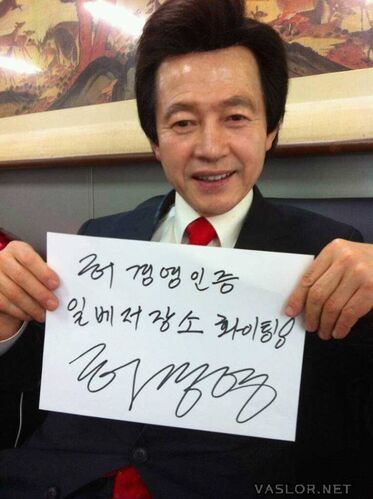 허경영인증
일베저장소 화이팅!
허경영
VASLOR.NET